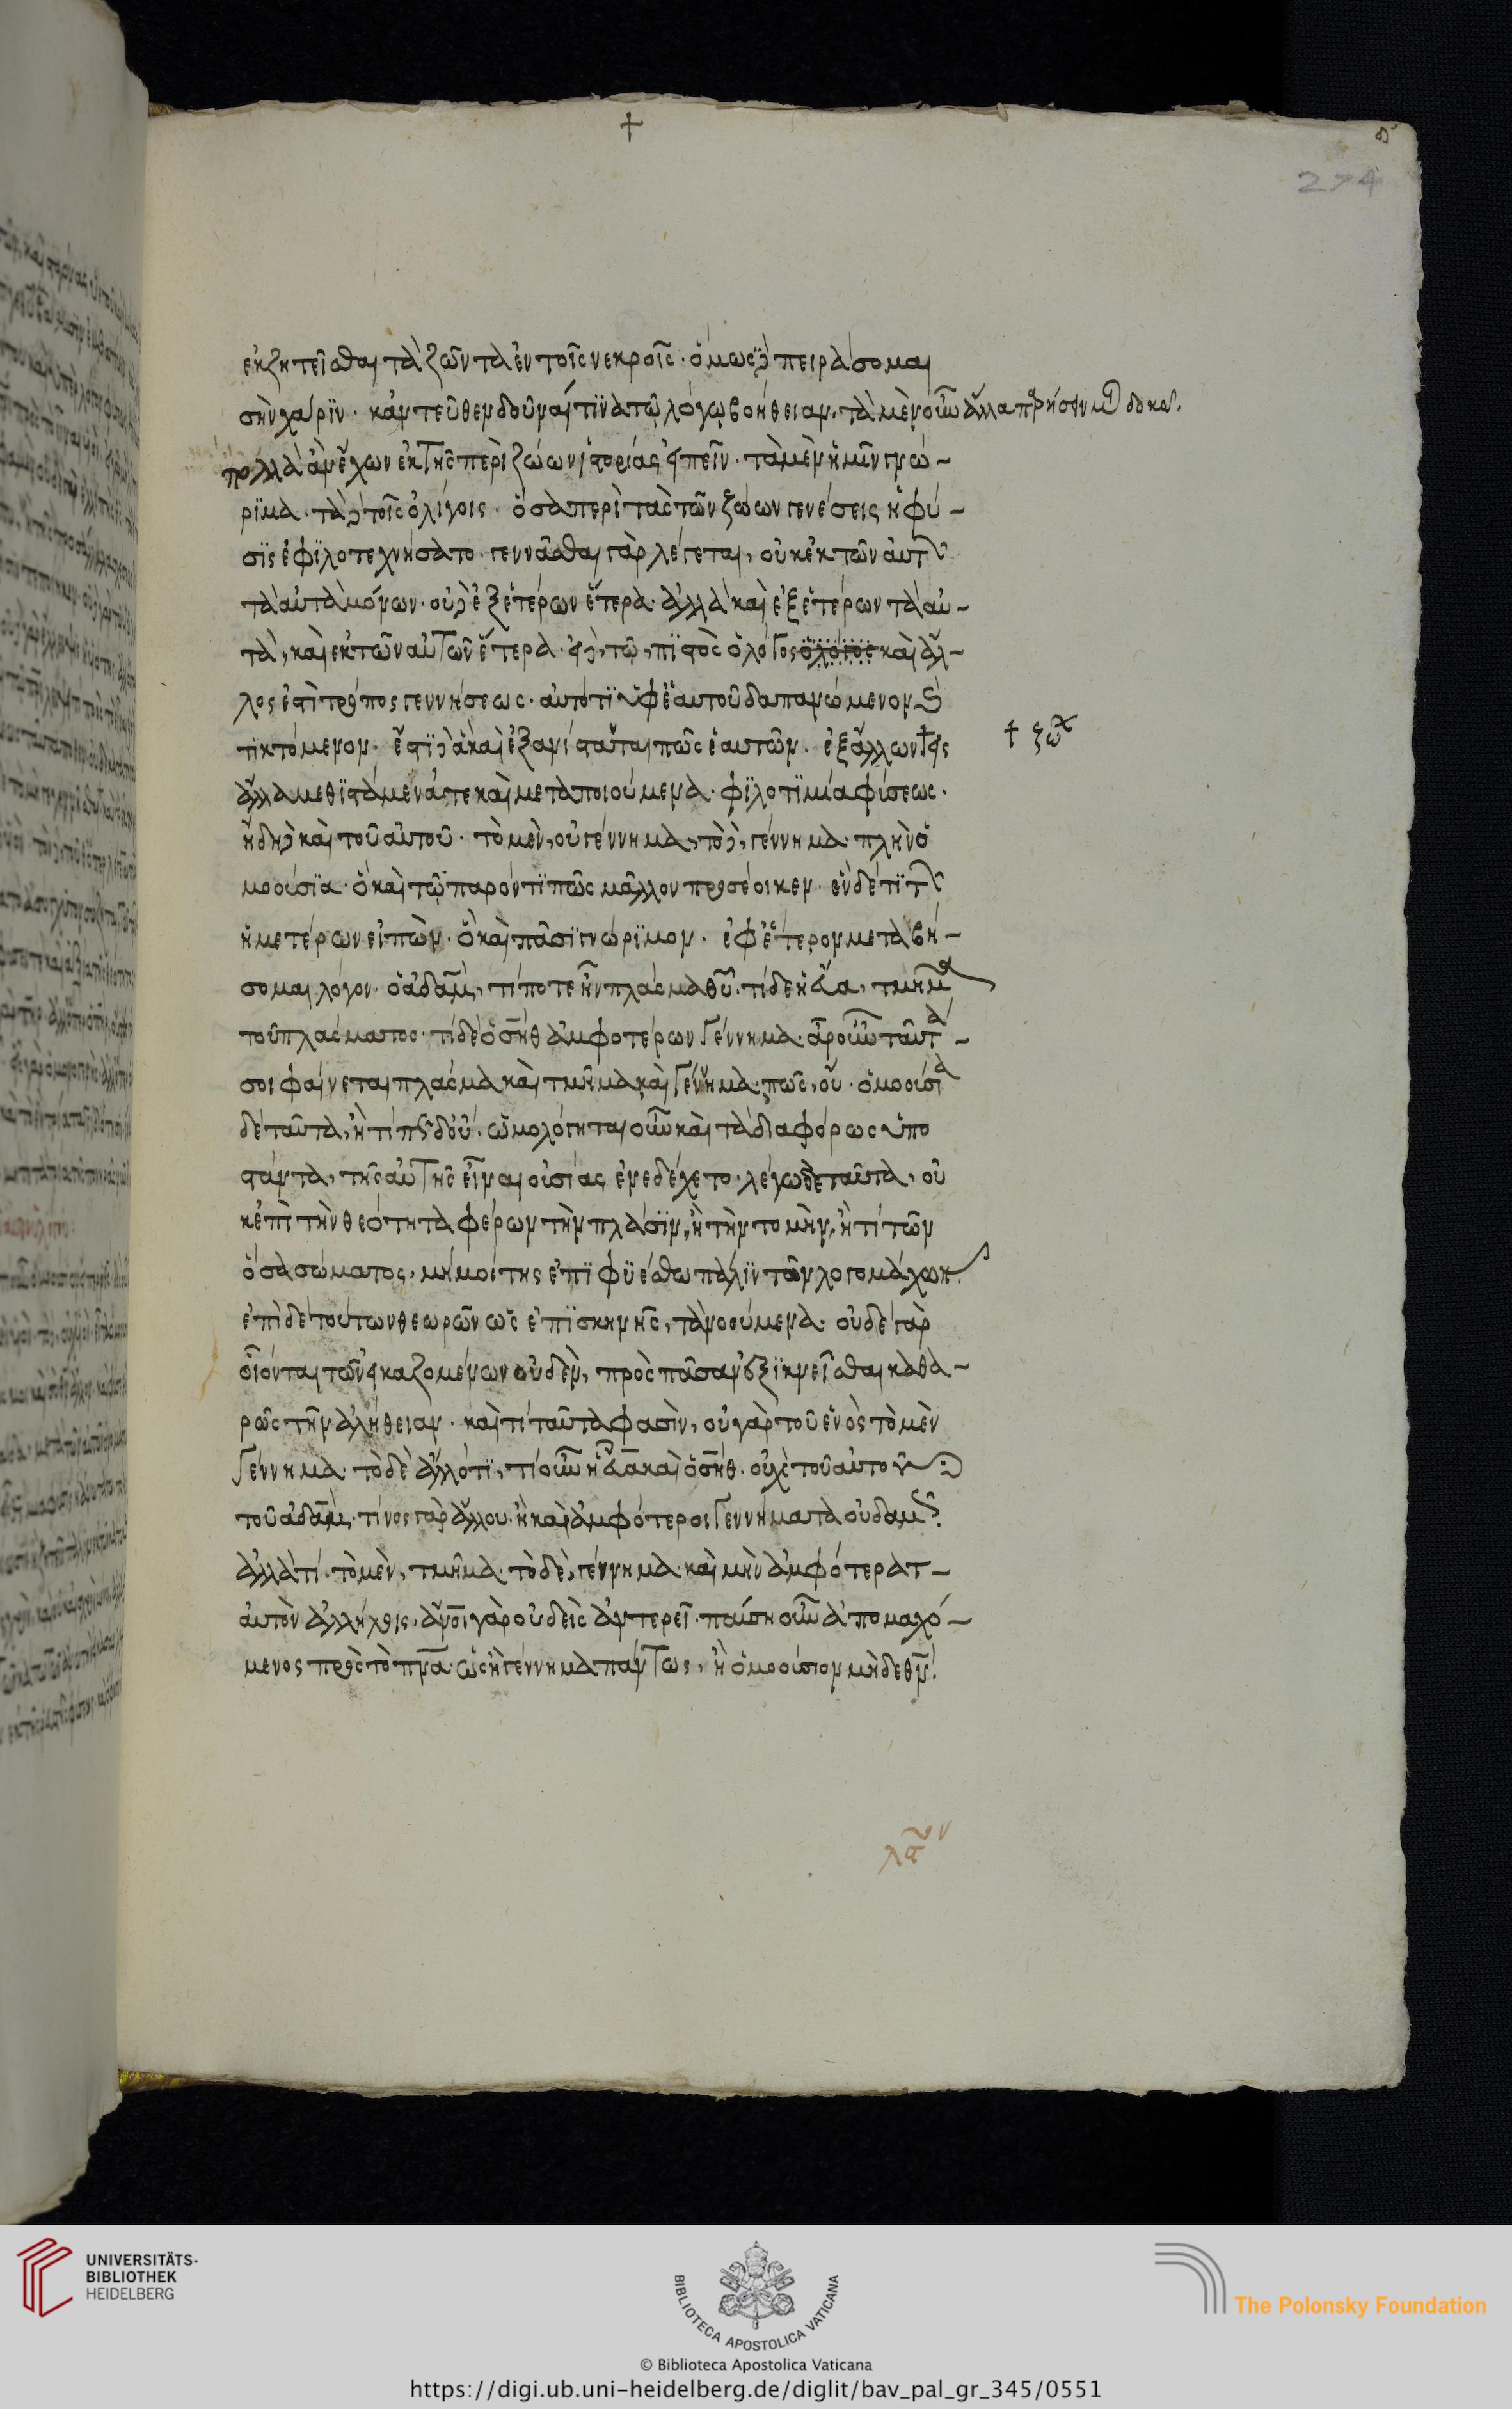 †
δ´
274
ἐκζητεῖσθαι τὰ ζῶντα ἐν τοῖς νεκροῖς· ὅμως δὲ πειράσομαι
σὴν χάριν· κἀντεῦθεν δοῦναί τινα τῷ λόγῳ βοήθειαν. τὰ μὲν οὖν ἄλλα
πολλὰ ἂν ἔχων ἐκ τῆς περὶ ζώων ἱστορίας εἰπεῖν· τὰ μὲν ἡμῖν γνώ-
ριμα· τὰ δὲ τοῖς ὀλίγοις· ὅσα περὶ τὰς τῶν ζώων γενέσεις ἡ φύ-
σις ἐφιλοτεχνήσατο. γεννᾶσθαι γὰρ λέγεται, οὐκ ἐκ τῶν αὐτῶν
τὰ αὐτὰ μόνων· οὐδὲ ἐξ ἑτέρων ἕτερα· ἀλλὰ καὶ ἐξ ἑτέρων τὰ αὐ-
τά, καὶ ἐκ τῶν αὐτῶν ἕτερα· εἰ δέ τῳ, πιστὸς ὁ λόγος ὁ λόγος καὶ ἄλ-
λος ἐστὶ τρόπος γεννήσεως· αὐτό τι ὑφ' ἑαυτοῦ δαπανώμενον καὶ
τικτόμενον· ἔστι δὲ ἃ καὶ ἐξανίσταταί πως ἑαυτῶν· ἐξ ἄλλων † εἰς
† ζῴων
ἄλλα μεθιστάμενά τε καὶ μεταποιούμενα· φιλοτιμία φύσεως·
ἤδη δὲ καὶ τοῦ αὐτοῦ· τὸ μὲν, οὐ γέννημα, τὸ δὲ, γέννημα· πλὴν ὁ
μοούσια· ὃ καὶ τῷ παρόντι πως μᾶλλον προσέοικεν· ἓν δέ τι τῶν
ἡμετέρων εἰπὼν· ὃ καὶ πᾶσι γνώριμον· ἐφ' ἕτερον μεταβή-
σομαι λόγον· ὁ ἀδὰμ, τί ποτε ἦν πλάσμα θυ. τί δὲ ἡ εὔα, τμῆμα
τοῦ πλάσματος· τί δὲ ὁ σὴθ ἀμφοτέρων γέννημα· ἆρ' οὖν ταυτά
σοι φαίνεται πλάσμα καὶ τμῆμα καὶ γέννημα· πῶς, οὔ· ὁμοούσια
δὲ ταῦτα, ἢ τί πῶς δ' οὔ· ὡμολόγηται οὖν καὶ τὰ διαφόρως ὑπο
στάντα, τῆς αὐτῆς εἶναι οὐσίας ἐνεδέχετο· λέγω δὲ ταῦτα, οὐ
κ ἐπὶ τὴν θεότητα φέρων τὴν πλάσιν, ἢ τὴν τομὴν, ἤ τι τῶν
ὅσα σώματος, μή μοί τις ἐπιφυέσθω πάλιν τῶν λογομάχων.
ἐπὶ δὲ τούτων θεωρῶν ὡς ἐπὶ σκηνῆς, τὰ νοούμενα· οὐδὲ γὰρ
οἷόν τε τῶν εἰκαζομένων οὐδὲν, πρὸς πᾶσαν ἐξικνεῖσθαι καθα-
ρῶς τὴν ἀλήθειαν· καὶ τί ταῦτα φασὶν, οὐ γὰρ τοῦ ἑνὸς τὸ μὲν
γέννημα· τὸ δὲ ἄλλό τι, τί οὖν ἡ εὔα καὶ ὁ σὴθ· οὐχὶ τοῦ αὐτοῦ
τοῦ ἀδάμ· τίνος γὰρ ἄλλου· ἢ καὶ ἀμφότεροι γεννήματα οὐδαμῶς.
ἀλλὰ τί· τὸ μὲν, τμῆμα· τὸ δὲ, γέννημα· καὶ μὴν ἀμφότερα τ-
αυτὸν ἀλλήλοις, ἄνοι γὰρ οὐδεὶς ἀντερεῖ· παύσῃ οὖν ἀπομαχό-
μενος πρὸς τὸ πνα· ὡς ἢ γέννημα πάντως, ἢ ὁμοούσιον μὴ δὲ θν.
UNIVERSITÄTS-
BIBLIOTHEK
HEIDELBERG
BIBLIOTECA APOSTOLICA VATICANA
The Polonsky Foundation
© Biblioteca Apostolica Vaticana
https://digi.ub.uni-heidelberg.de/diglit/bav_pal_gr_345/0551